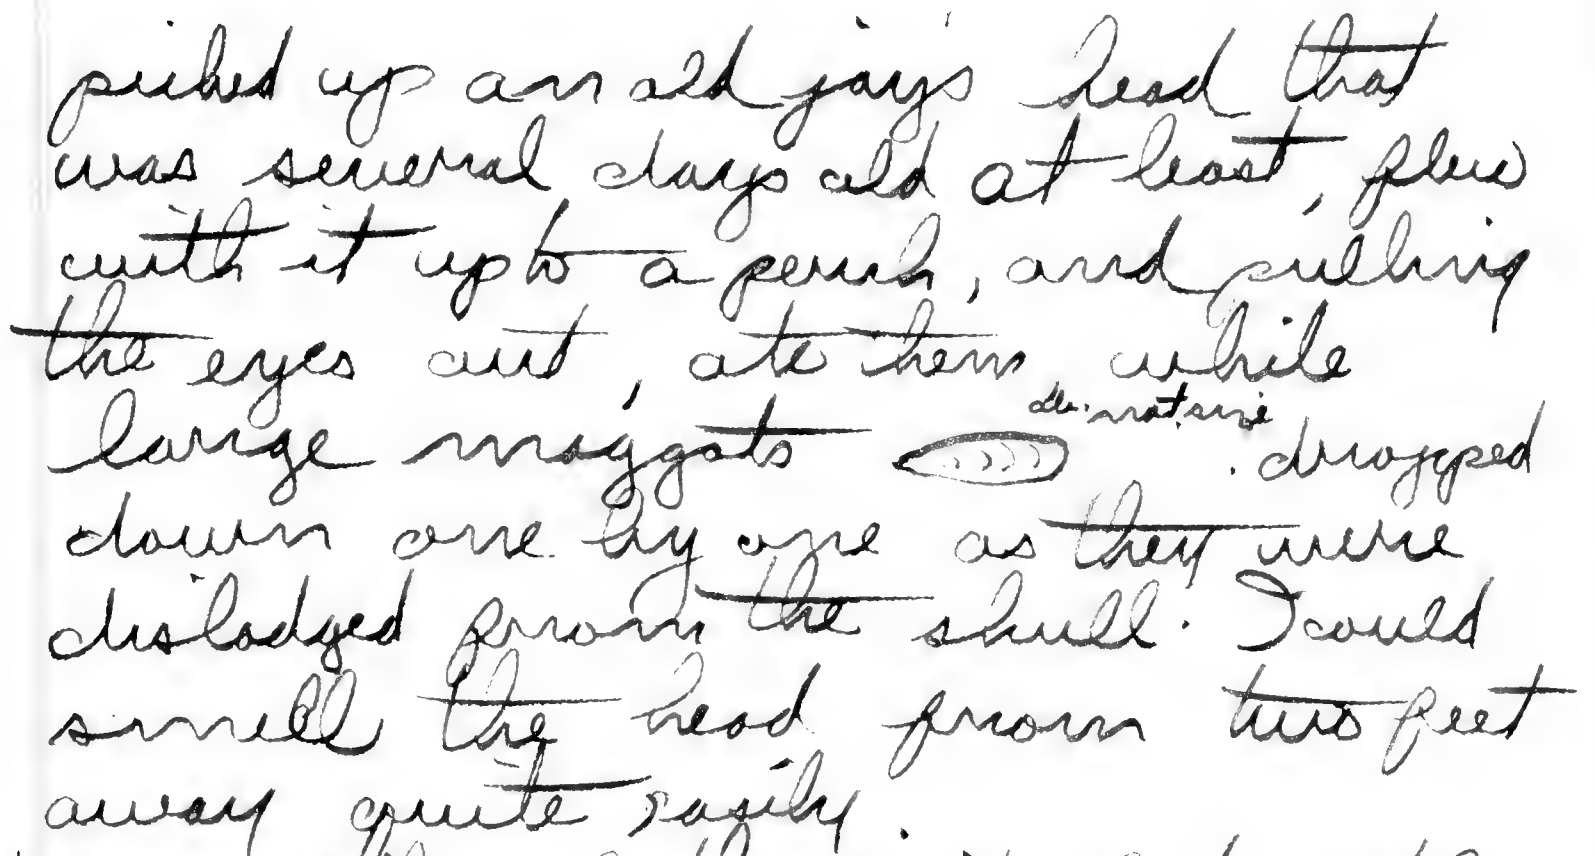 picked up an old jay's head that
was several days old at least, flew
with it up to a perch, and pulling
the eyes out, ate them while
large maggots
nat. size
dropped
down one by one as they were
dislodged from the skull. I could
smell the head from two feet
away quite easily.